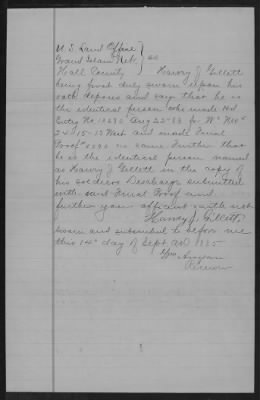 U.S. Land Office
Grand Island Neb. } ss
Hall County Harvey J Gillett
being first duly sworn upon his
oath deposes and says that he is
the identical person who made Hd
Entry No. Aug 22-83 for W² NW⁴
24 15-12 West and made Final
Proof on same. Further that
he is the identical person named
as Harvey J Gillett in the copy of
his soldiers Discharge submitted
with said Final Proof and
further your affiant saith not
Harvey J. Gillett
Sworn and subscribed to before me
this 14th day of Sept AD 1885
Wm
Receiver